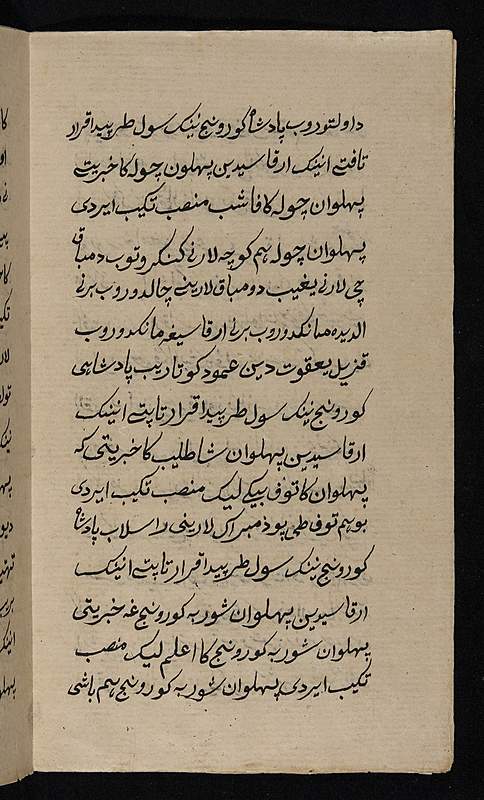 داولتوروب پادشاه کورونج نینک سول طرپیدا قرار
تافتے انینک ارقاسیدین پهلون چوله کا خبریتے
پهلوان چوله کا فاشب منصب تکیب ایردی
پهلوان چوله هم کوچه لارنے کنکروتوب دمباق
چی لارنے یغیب دومباق لارینے چالدوروب برنے
الدیده مانکدوروب برنے ارقاسیغه مانکدوروب
قزیل یعقوت دین عمود کوتاریب پادشاهی
کورونج نینک سول طرپیدا قرار تاپتے انینک
ارقاسیدین پهلوان شاطلیب کا خبریتی که
پهلوان کا توف بیکے لیک منصب تکیب ایردی
بو هم توف طی پوذ مبراک لارینی راسلاب پادشاه
کورونج نینک سول طرپیدا قرار تاپتے انینک
ارقاسیدین پهلوان شوربه کورونج غه خبریتی
پهلوان شوربه کورونج کا اعلم لیک منصب
تکیب ایردی پهلوان شوربه کورونج هم باشی